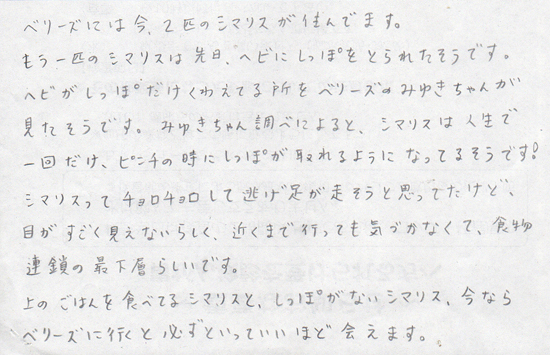 ベリーズには今、2匹のシマリスが住んでます。
もう一匹のシマリスは先日、ヘビにしっぽをとられたそうです。
ヘビがしっぽだけくわえてる所をベリーズのみゆきちゃんが
見たそうです。みゆきちゃん調べによると、シマリスは人生で
一回だけ、ピンチの時にしっぽが取れるようになってるそうです!
シマリスってチョロチョロして逃げ足が走そうと思ってたけど、
目がすごく見えないらしく、近くまで行っても気づかなくて、食物
連鎖の最下層らしいです。
上のごはんを食べてるシマリスと、しっぽがないシマリス、今なら
ベリーズに行くと必ずといっていいほど会えます。